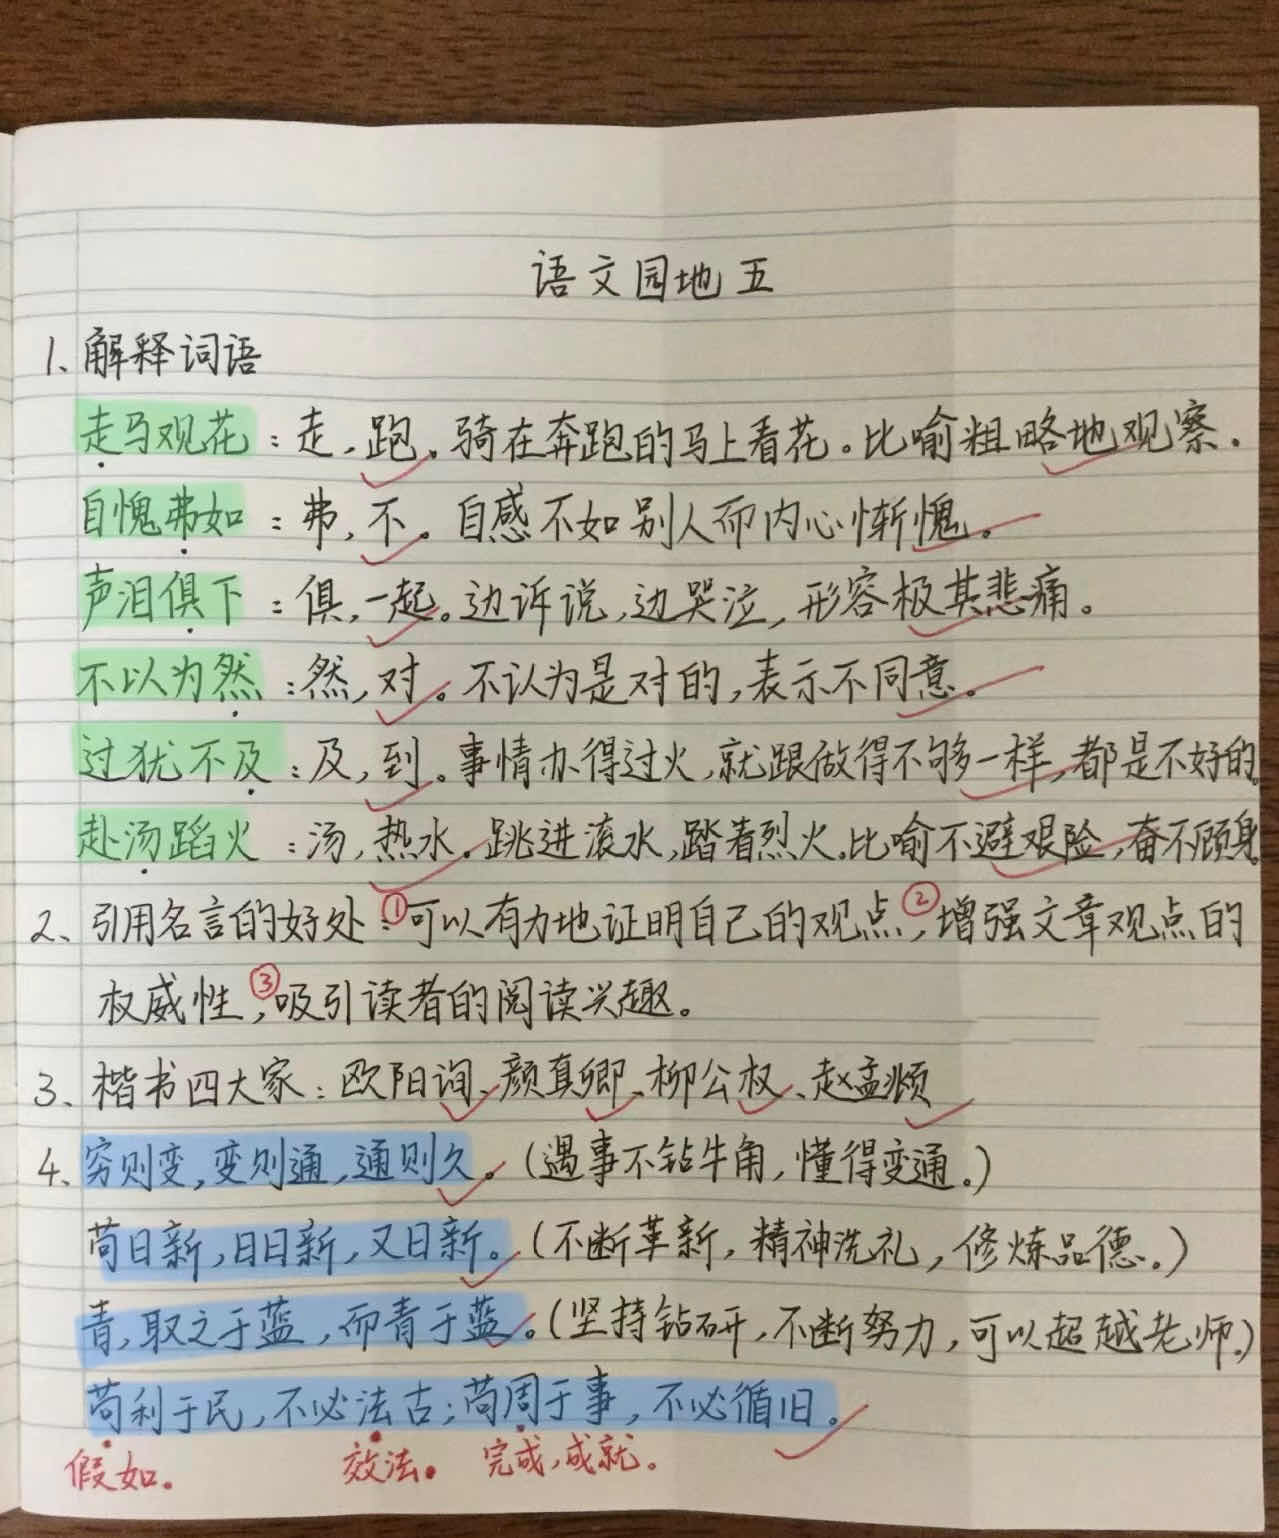 语文园地五
1、解释词语
走马观花：走，跑。骑在奔跑的马上看花。比喻粗略地观察。
自愧弗如：弗，不。自感不如别人而内心惭愧。
声泪俱下：俱，一起。边诉说，边哭泣，形容极其悲痛。
不以为然：然，对。不认为是对的，表示不同意。
过犹不及：及，到。事情办得过火，就跟做得不够一样，都是不好的。
赴汤蹈火：汤，热水。跳进滚水，踏着烈火。比喻不避艰险，奋不顾身。
2、引用名言的好处：①可以有力地证明自己的观点，②增强文章观点的
权威性，③吸引读者的阅读兴趣。
3、楷书四大家：欧阳询、颜真卿、柳公权、赵孟頫
4、穷则变，变则通，通则久。（遇事不钻牛角，懂得变通。）
苟日新，日日新，又日新。（不断革新，精神洗礼，修炼品德。）
青，取之于蓝，而青于蓝。（坚持钻研，不断努力，可以超越老师。）
苟利于民，不必法古；苟周于事，不必循旧。
假如。 效法。 完成，成就。